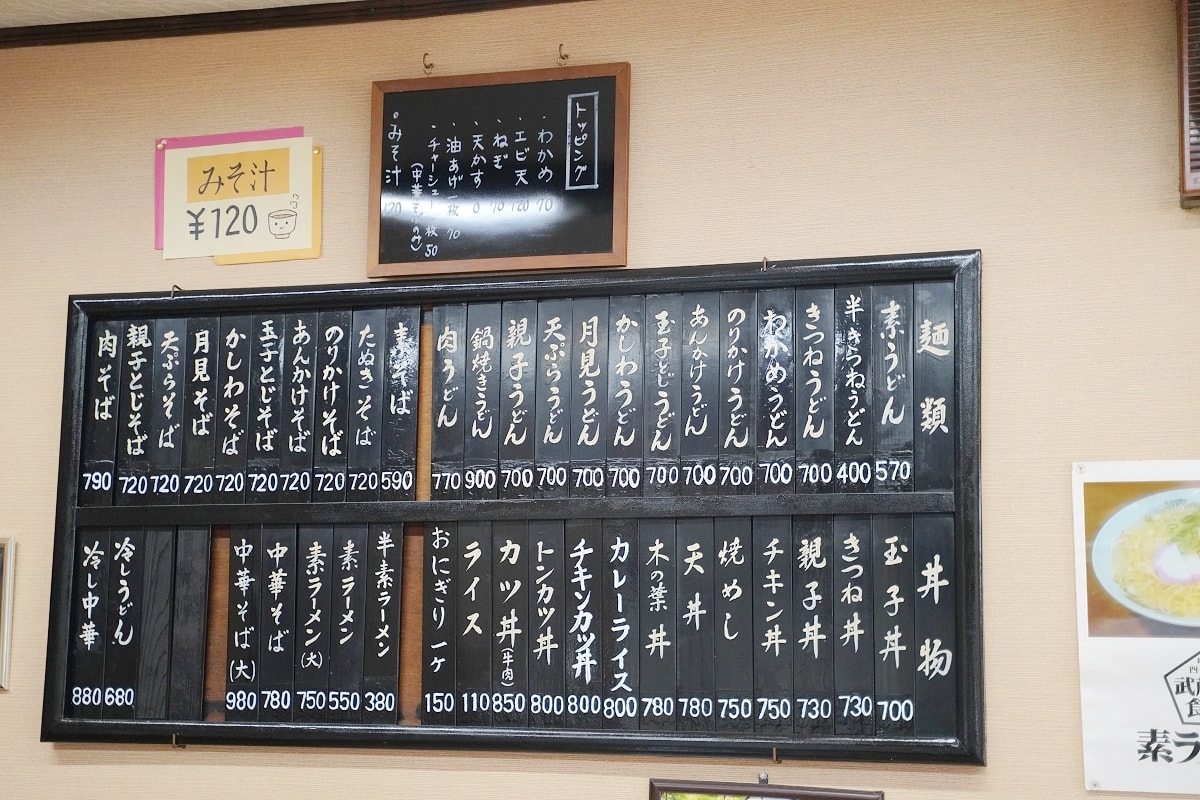 みそ汁
¥120
トッピング
・わかめ 70
・エビ天 120
・ねぎ 70
・天かす 0
・油あげ一枚 70
・チャーシュー一枚 50
(中華そばのみ)
・みそ汁 120
麺類
素うどん 570
半きつねうどん 400
きつねうどん 700
わかめうどん 700
のりかけうどん 700
あんかけうどん 700
玉子とじうどん 700
かしわうどん 700
月見うどん 700
天ぷらうどん 700
親子うどん 700
鍋焼きうどん 900
肉うどん 770
素そば 590
たぬきそば 720
のりかけそば 720
あんかけそば 720
玉子とじそば 720
かしわそば 720
月見そば 720
天ぷらそば 720
親子とじそば 720
肉そば 790
丼物
玉子丼 700
きつね丼 730
親子丼 730
チキン丼 750
焼めし 750
天丼 780
木の葉丼 780
カレーライス 800
チキンカツ丼 800
トンカツ丼 800
カツ丼(牛肉) 850
ライス 110
おにぎり一ケ 150
半素ラーメン 380
素ラーメン 550
素ラーメン(大) 750
中華そば 780
中華そば(大) 980
冷しうどん 680
冷し中華 880
素ラ